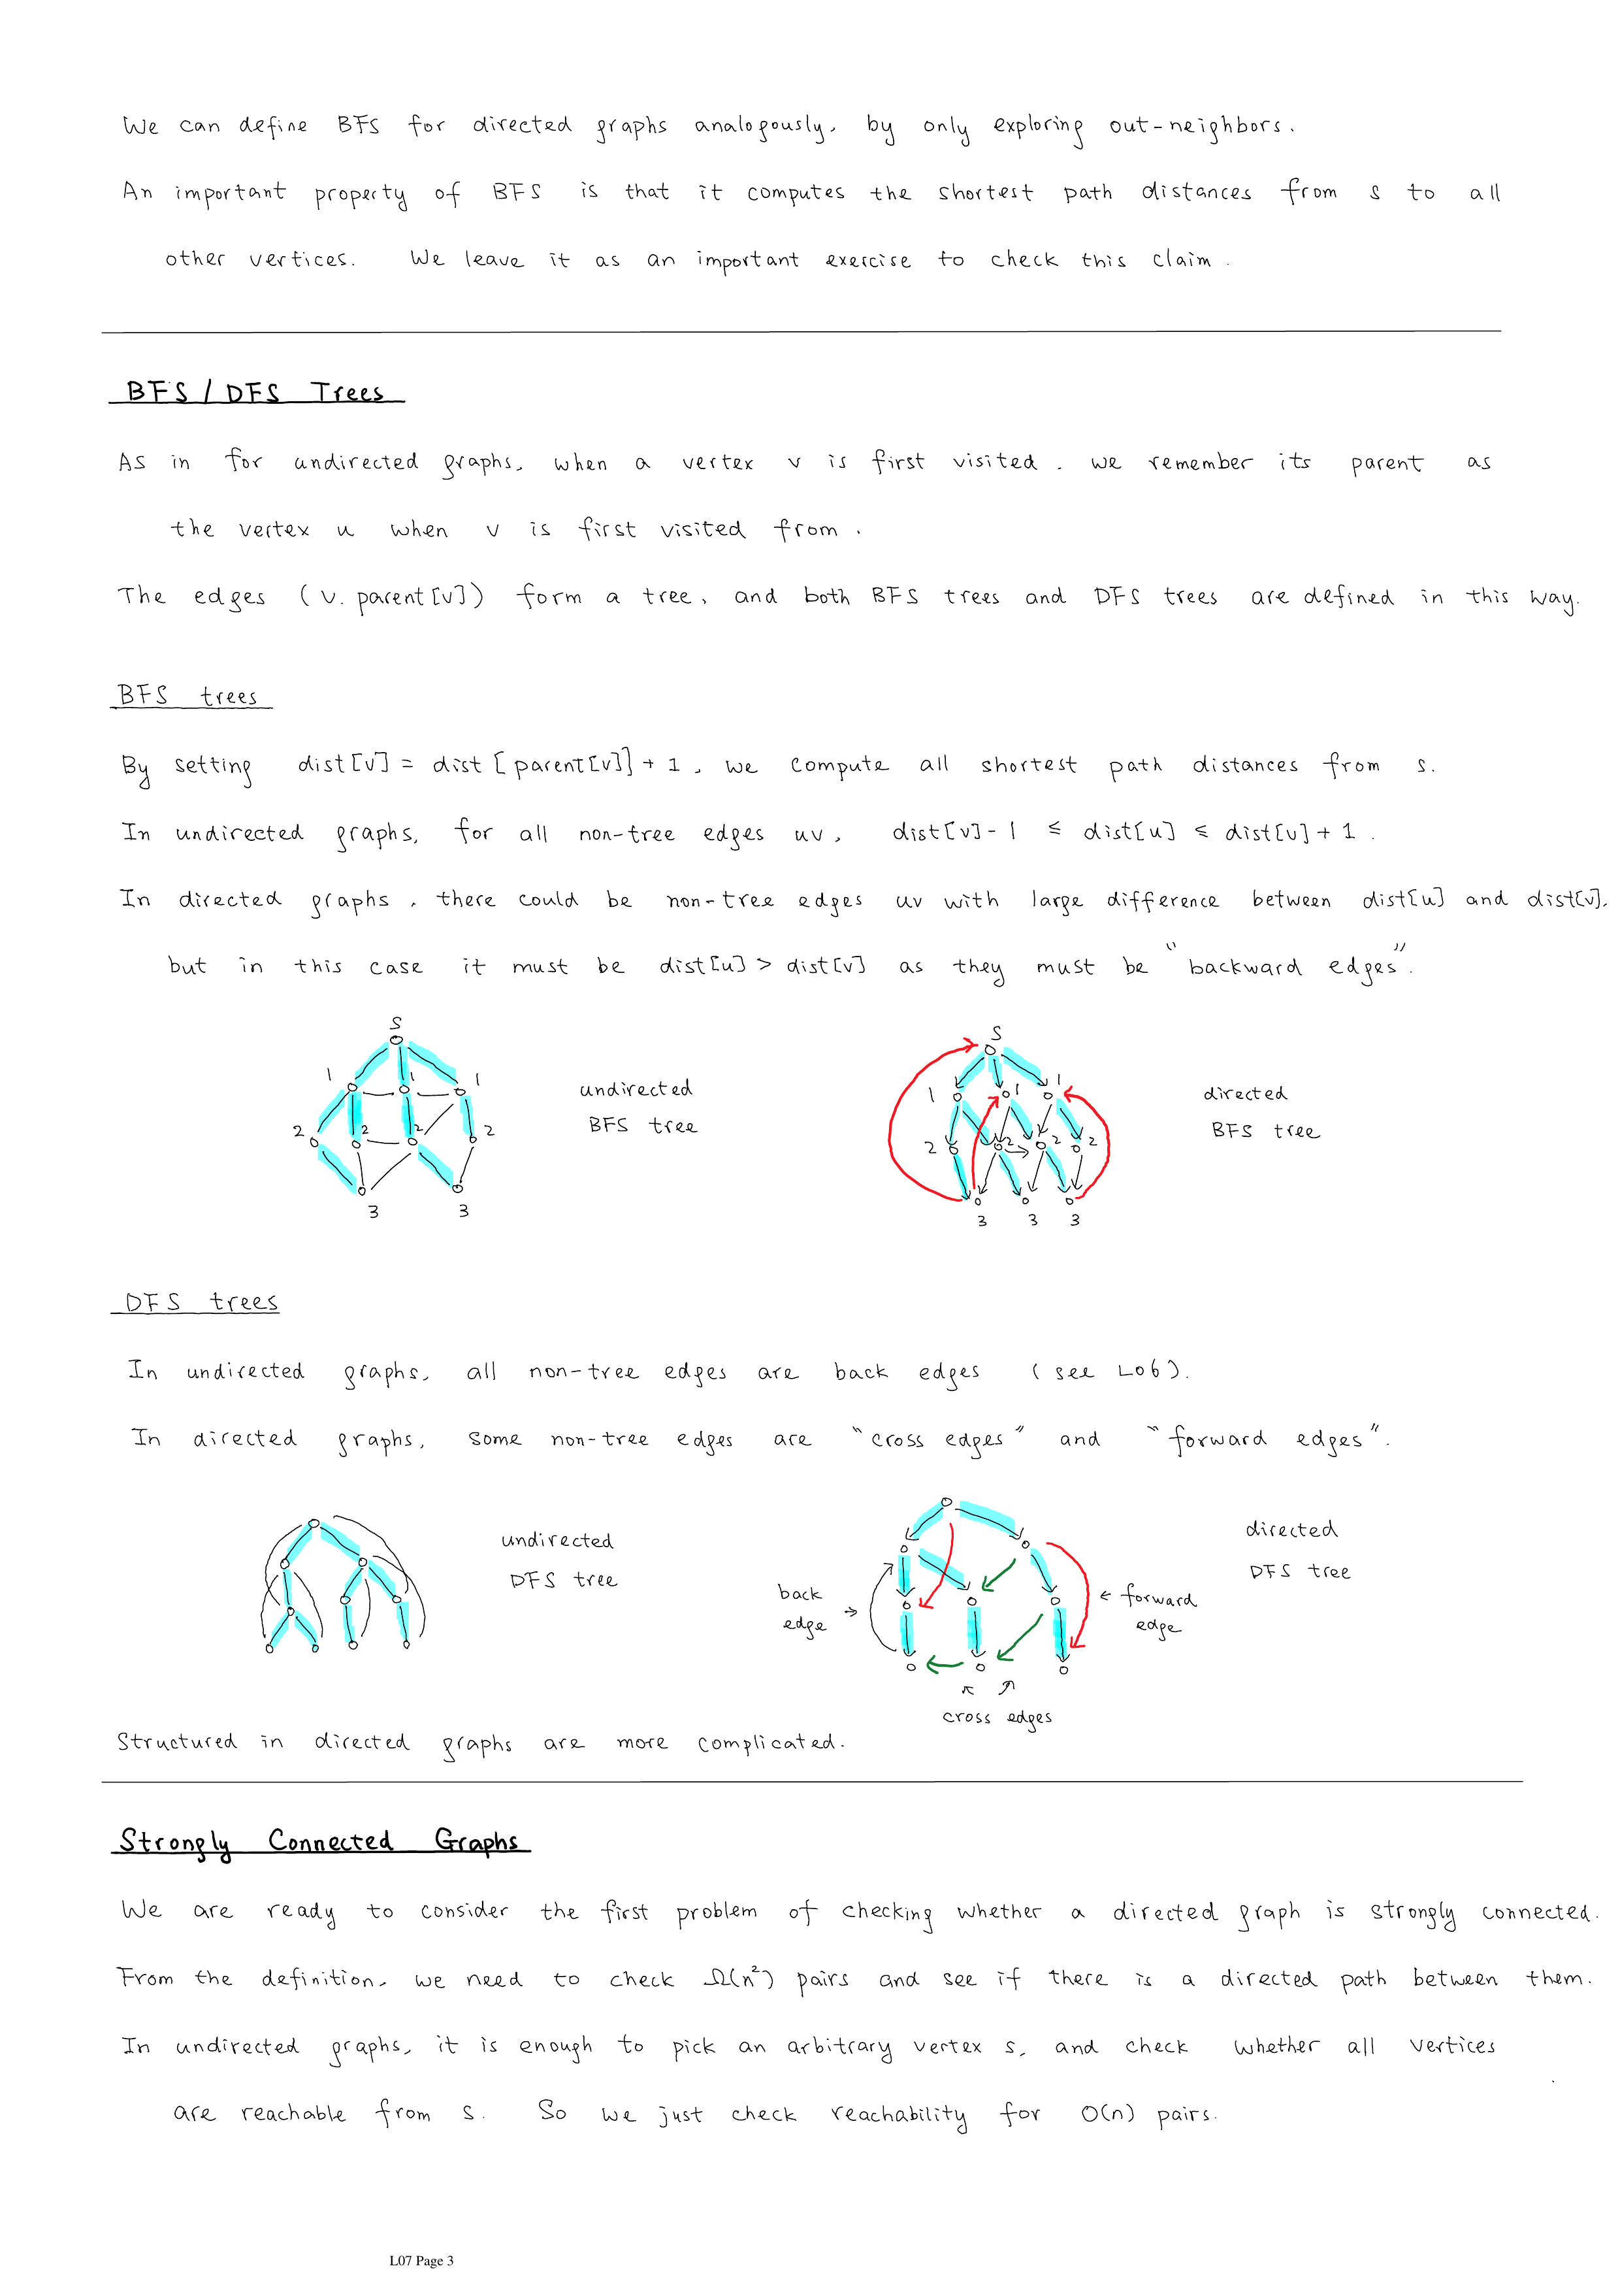 We can define BFS for directed graphs analogously, by only exploring out-neighbors.
An important property of BFS is that it computes the shortest path distances from s to all
other vertices. We leave it as an important exercise to check this claim.
BFS / DFS Trees
As in for undirected graphs, when a vertex v is first visited, we remember its parent as
the vertex u when v is first visited from.
The edges (v, parent[v]) form a tree, and both BFS trees and DFS trees are defined in this way.
BFS trees
By setting dist[v] = dist[parent[v]] + 1, we compute all shortest path distances from s.
In undirected graphs, for all non-tree edges uv, dist[v]-1 ≤ dist[u] ≤ dist[v]+1.
In directed graphs, there could be non-tree edges uv with large difference between dist[u] and dist[v],
but in this case it must be dist[u] > dist[v] as they must be "backward edges".
S
1 1 1
2 2 2 2
3 3
undirected
BFS tree
S
1 1 1
2 2 2 2
3 3 3
directed
BFS tree
DFS trees
In undirected graphs, all non-tree edges are back edges (see L06).
In directed graphs, some non-tree edges are "cross edges" and "forward edges".
undirected
DFS tree
back
edge →
← forward
edge
cross edges
directed
DFS tree
Structured in directed graphs are more complicated.
Strongly Connected Graphs
We are ready to consider the first problem of checking whether a directed graph is strongly connected.
From the definition, we need to check Ω(n²) pairs and see if there is a directed path between them.
In undirected graphs, it is enough to pick an arbitrary vertex s, and check whether all vertices
are reachable from s. So we just check reachability for O(n) pairs.
L07 Page 3